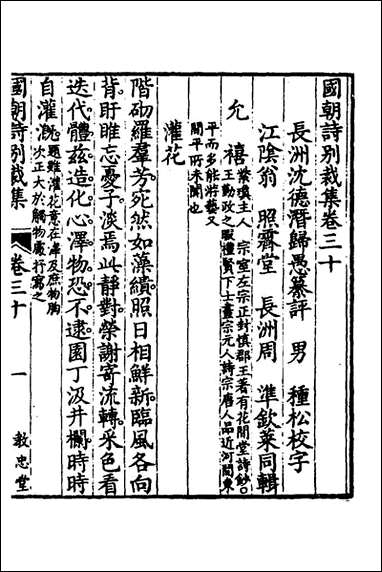 國朝詩別裁集卷三十
長洲沈德潛歸愚纂評 男 種松校字
江陰翁 照霽堂 長洲周 準欽萊同輯
允禧 紫瓊主人 宗室左宗正封慎郡王著有花間堂詩鈔○
王勤政之暇禮賢下士畫宗元人詩宗唐人品近河間東
平而多能游藝又
間平所未聞也
灌花
階砌羅羣芳死然如藻繢照日相鮮新臨風各向
背盱睢忘憂子淡焉此靜對榮謝寄流轉采色看
迭代體茲造化心澤物恐不逮園丁汲井欄時時
自灌溉 題雖灌花意在澤及庶物胸
次正大於觸物處行寫之
國朝詩別裁集 卷三十 一 教忠堂